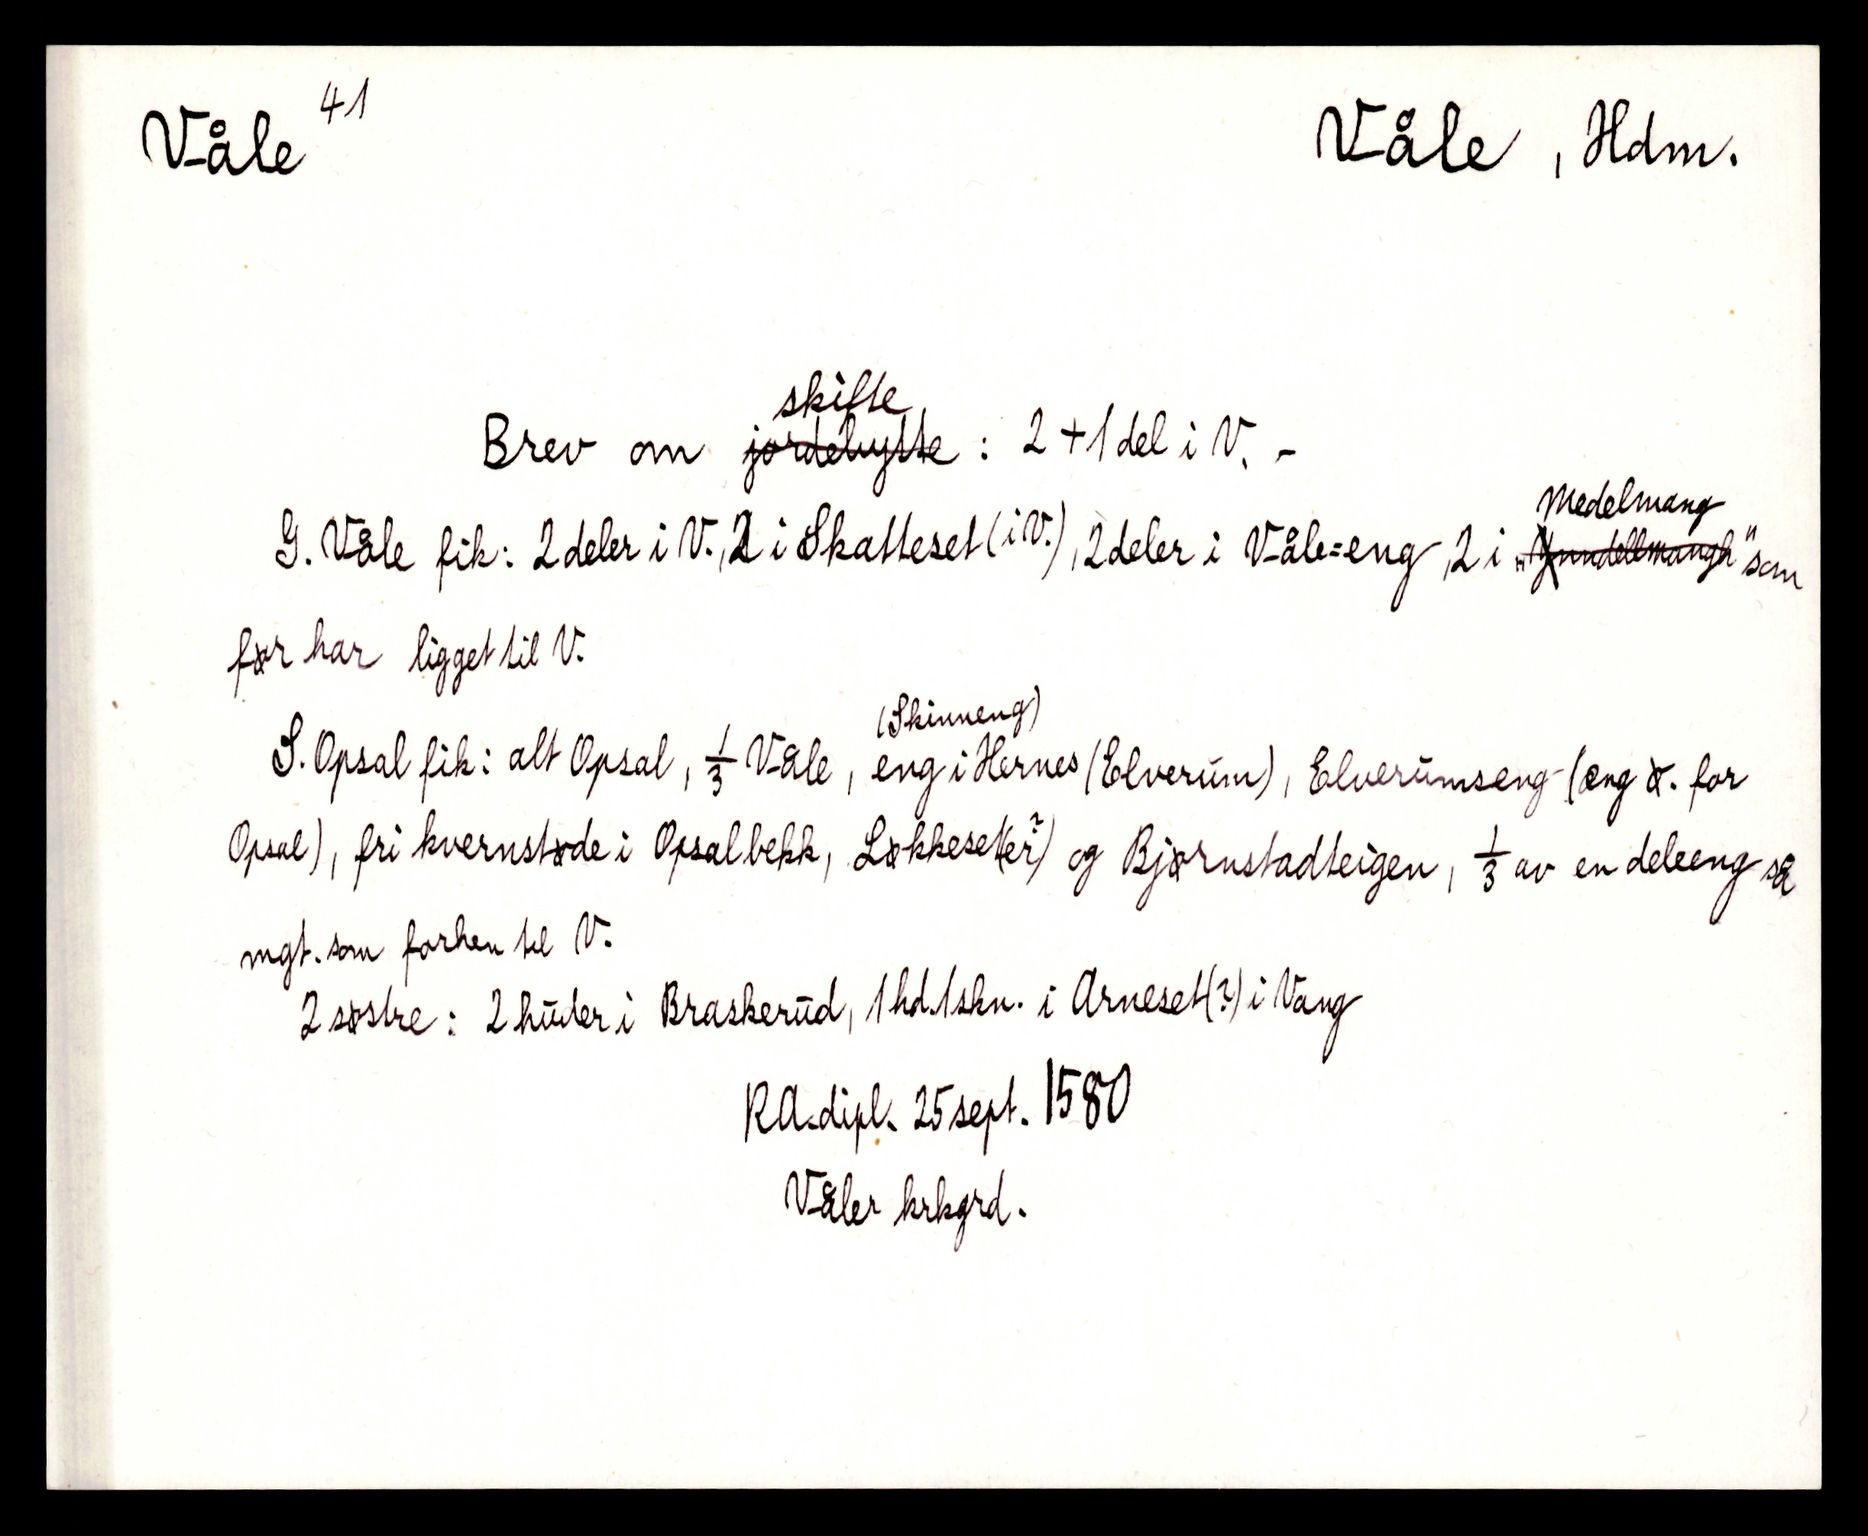 Våle 41 Våle, Hdm.
skifte
Brev om jordebytte : 2 + 1 del i V. -
Medelmang
G. Våle fik: 2 deler i V., 2 i Skatteset (i V.), 2 deler i Våle=eng, 2 i " " som
før har ligget til V.
(Skinneng)
S. Opsal fik: alt Opsal, 1/3 Våle, eng i Hernes (Elverum), Elverumseng (eng ø. for
Opsal), fri kvernstøde i Opsalbekk, Løkkeset(er?) og Bjørnstadteigen, 1/3 av en deleeng så
mgt. som forhen til V.
2 søstre: 2 huder i Braskerud, 1 hd. 1 skn. i Arneset (?) i Vang
RA-dipl. 25 sept. 1580
Våler krkgrd.